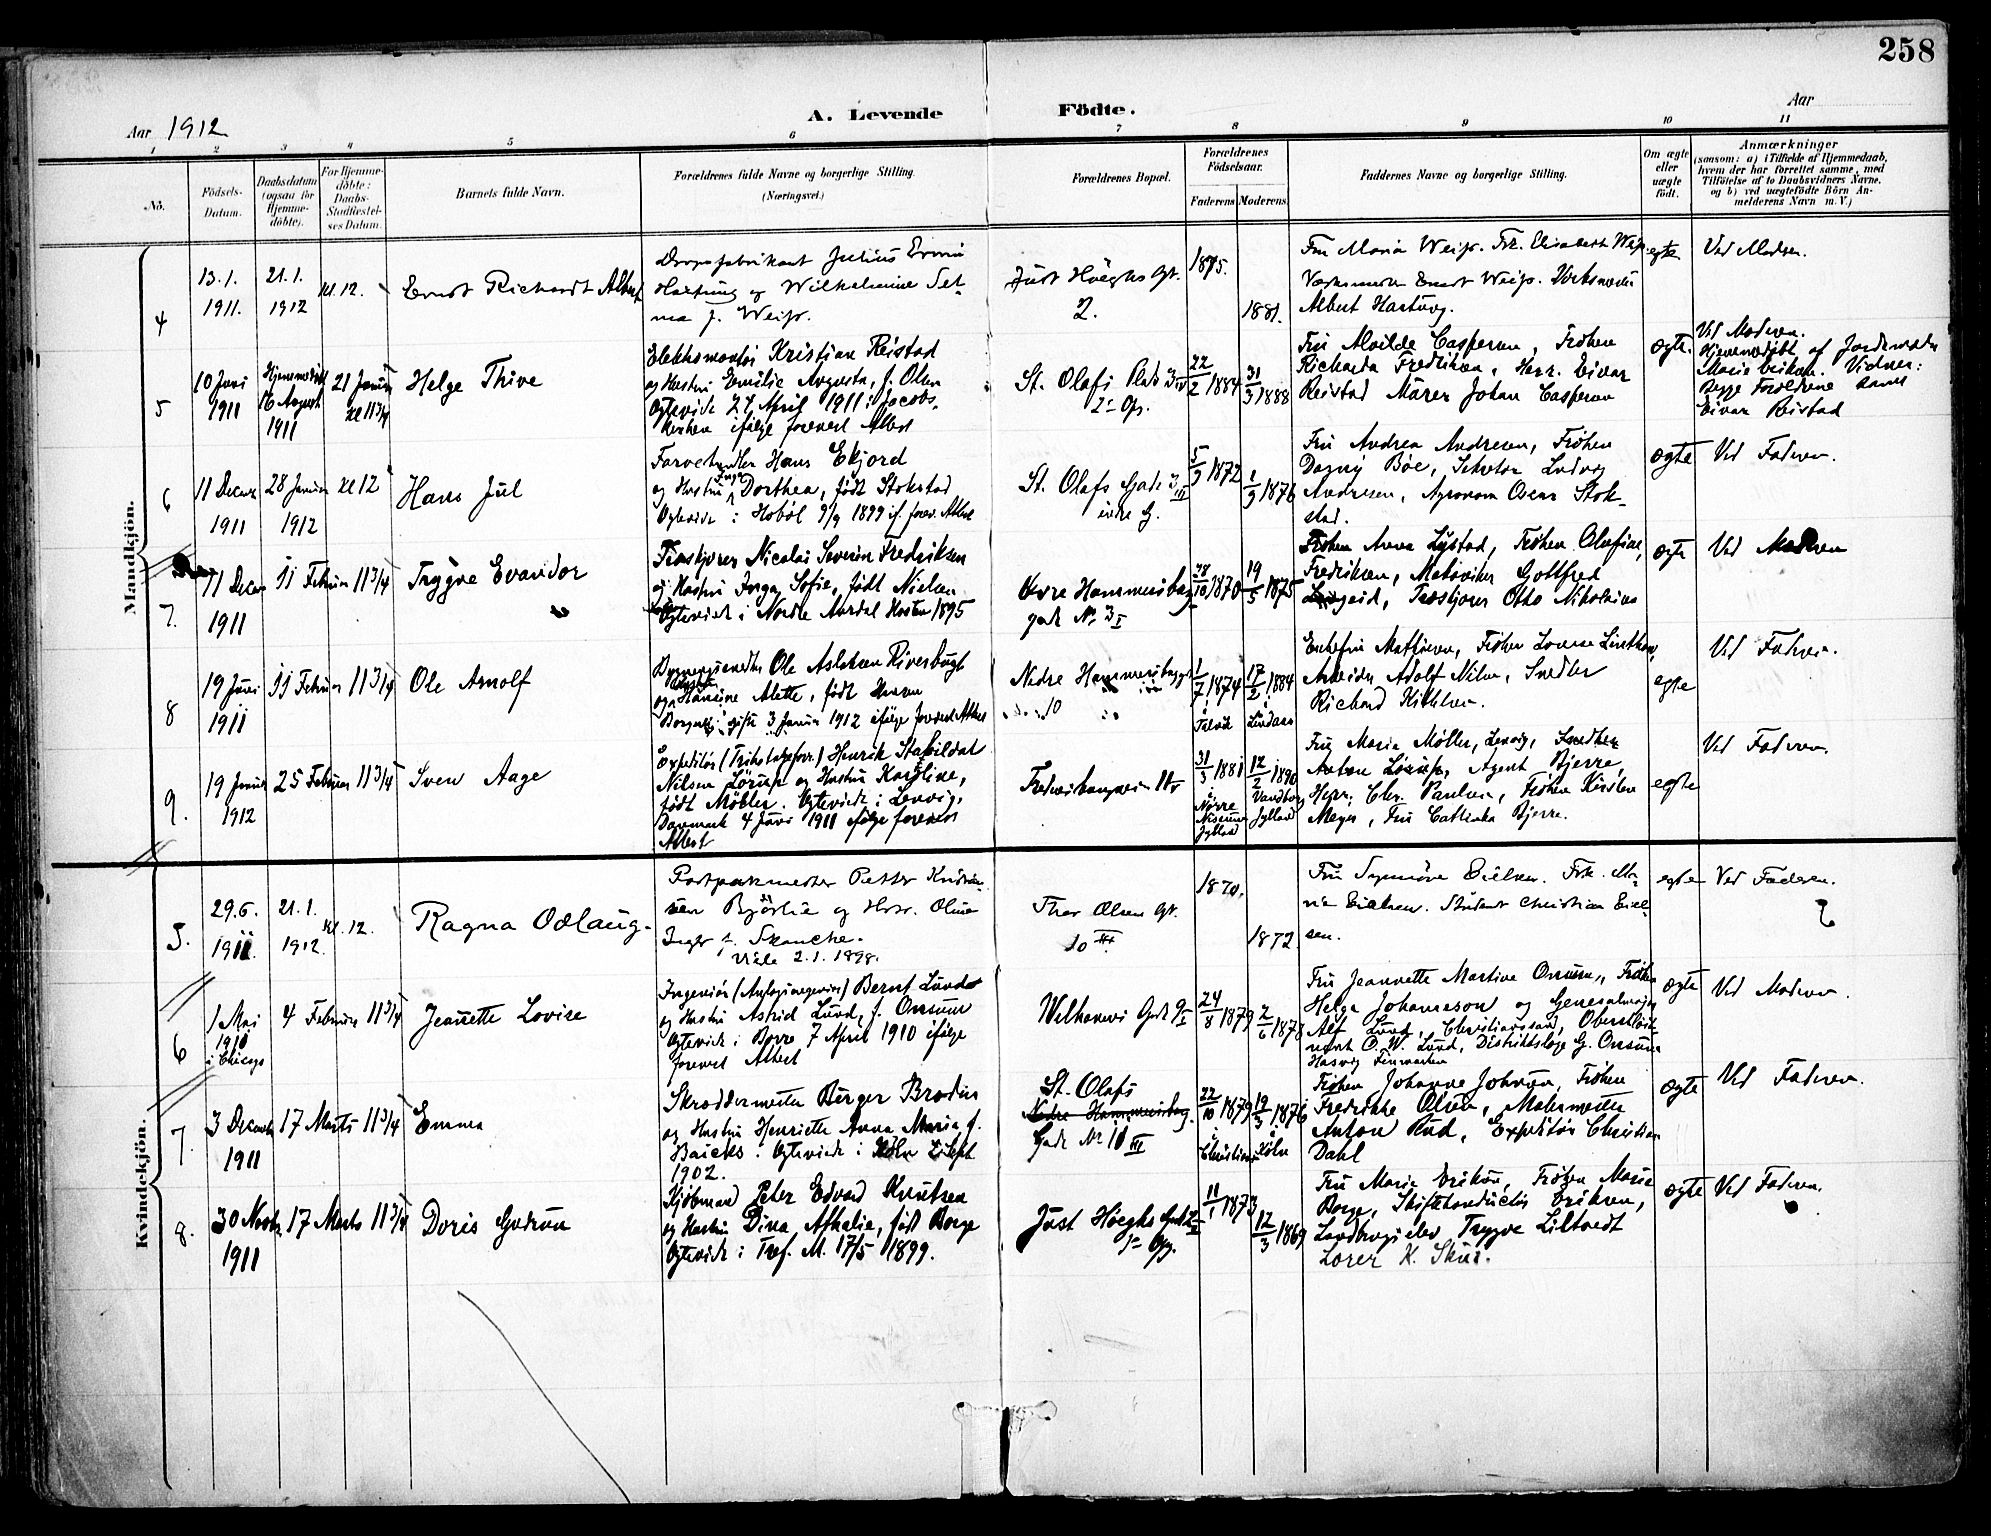 258
A. Levende Födte.
Aar 1912
Aar
1 2 3 4 5 6 7 8 9 10 11
No.
Födsels-
Datum.
Daabsdatum
(ogsaa for
Hjemme-
döbte).
For Hjemme-
döbte:
Daabs-
Stadfæstel-
ses Datum.
Barnets fulde Navn.
Forældrenes fulde Navne og borgerlige Stilling.
(Næringsvei.)
Forældrenes Bopæl.
Forældrenes
Födselsaar.
Faderens Moderens
Faddernes Navne og borgerlige Stilling.
Om ægte
eller
uægte
födt.
Anmærkninger
(saasom: a) i Tilfælde af Hjemmedaab,
hvem der har forrettet samme, med
Tilföielse af to Daabsvidners Navne,
og b) ved uægtefödte Börn An-
melderens Navn m. V.)
Mandkjön.
4
13.1.
1911.
21.1.
1912
kl. 12.
Ernst Richardt Albert
Julius Erwin
Hartung og Wilhelmine Sel-
ma f. Weiss.
Just Höeghs Gt.
2.
1875.
1881.
Fru Maria Weiss. Frk. Elisabeth Weiss.
Værkmester Ernst Weiss.
Albert Hartung.
egte
Ved Moderen.
5
10 Juni
1911
Hjemmedöbt
16 August
1911
21 Januar
kl 11 3/4
Helge Thive
Elektromontör Kristian Reistad
og Hustru Emilie Augusta, f. Olsen
Egteviede 22 April 1911 i Jacobs-
kirken ifölge forevist Attest
St. Olafs Plads 3 IV
2den Opg.
22/2 1884
31/3 1888
Fru Alvilde Caspersen, Fröken
Richarda Fredriksen, Herr Eivar
Reistad Murer Johan Caspersen
ægte.
Ved Moderen.
Hjemmedöbt af Jordemoder
Marie Eriksen. Vidner:
Begge Forældrene samt
Eivar Reistad
6
11 Decbr
1911
28 Januar
1912
kl 12
Hans Jul
Farvehandler Hans Ekjord
og Hustru Inga Dorthea, födt Stokstad
Egteviede i Hoböl 9/9 1899 if. forev. Attest
St. Olafs Gade 3 III
indre G.
5/9 1872
1/9 1876
Fru Andrea Andresen, Fröken
Dagny Böe, Sekretær Ludvig
Andresen, Agronom Oscar Stok-
stad.
ægte
Ved Faderen.
7.
11 Decbr
1911
11 Februar
11 3/4
Trygve Evandor
Træskjærer Nicolai Severin Fredriksen
og Hustru Inga Sofie, födt Nielsen
Egteviede i Nordre Aurdal Hösten 1895
Övre Hammersborg
gade No 3 I
28/10 1870
19/5 1875
Fröken Anna Lystad, Fröken Olafine
Fredriksen, Maskinist Gottfred
Træskjærer Otto Nikolaisen
ægte
Ved Moderen
8
19 Juni
1911
11 Februar
11 3/4
Ole Arnolf
Ole Aslaksen Riversbugt
og Hustru Hansine Alette, födt Hansen
gifte 3 Januar 1912 ifölge forevist Attest
Nedre Hammersborggt
10
1/7 1874
17/2 1884
Enkefru Mathisen, Fröken Lovise
Arbeider Adolf Nilsen, Snedker
Richard
egte
Ved Faderen.
9.
19 Januar
1912
25 Februar
11 3/4
Sven Aage
Expeditör (Trikotageforr.) Henrik Stabildal
Nilsen Lörup og Hustru Karoline,
födt Möller. Egteviede i Lemvig,
Danmark 4 Juni 1911 ifölge forevist
Attest
Fredensborgveien 11
31/3 1881
i
Nörre
Nissum
Jylland
12/2 1890
Vandborg
Jylland
Fru Marie Möller, Lemvig, Snedker
Anton Lörup, Agent Bjerre,
Herr Chr. Paulsen, Fröken Kirsten
Meyer, Fru Cathinka Bjerre.
egte
Ved Faderen.
Kvindekjön.
5.
29.6.
1911.
21.1.
1912.
kl. 12.
Ragna Odlaug.
Postpakmester Petter Kristian-
sen Bjørlie og Hstr. Oline
Inger f. Skanche.
Viede 2.1.1898.
Thor Olsens Gt.
10 III
1870.
1872
Fru Synnöve Eielsen. Frk. Ma-
rie Eielsen. Student Christian Eiel-
sen.
egte
Ved Faderen.
6
1 Mai
1910
i Chicago
4 Februar
11 3/4
Jeanette Lovise
Ingeniör (Anlægsingeniör) Bernt Lund
og Hustru Astrid Lund, f. Onsum
Egteviede i Borre 7 April 1910 ifölge
forevist Attest
Welhavens Gade 9 I
24/8 1879
2/6 1878
Fru Jeannette Martine Onsum, Fröken
Helga Johannesson og Generalmajor
Alf Lund, Christianssand, Oberstlöit-
nant O. W. Lund, Distriktslæge G. Onsum
Hasvig Finmarken
ægte
Ved Moderen.
7.
3 Decemb
1911
17 Marts
11 3/4
Emma
Skræddermester Berger Brodin
og Hustru Henriette Anna Maria f.
Baicks. Egteviede i Köln 2 Sept
1902.
St. Olafs
Nedre Hammersborg.
Gade No 11 III
22/10 1879
i
Christiania
19/3 1876
i
Köln
Fröken Johanna Johnsen, Fröken
Fredrikke Olsen, Malermester
Anton Rud, Expeditör Christian
Dahl
ægte
Ved Faderen.
8.
30 Novb
1911
17 Marts
11 3/4
Doris Gudrun
Kjöbmand Peter Edvard Knutsen
og Hustru Dina Athalie, födt Borge
Egteviede i Tref. M. 17/5 1899.
Just Höeghs Gade
1ste Opg.
11/1 1873
12/3 1869
Fru Marie Eriksen, Fröken Marie
Borge, Skiftekonduktör Eriksen,
Landbrugselev Trygve Liltvedt
Lærer K. Skue.
ægte
Ved Faderen.